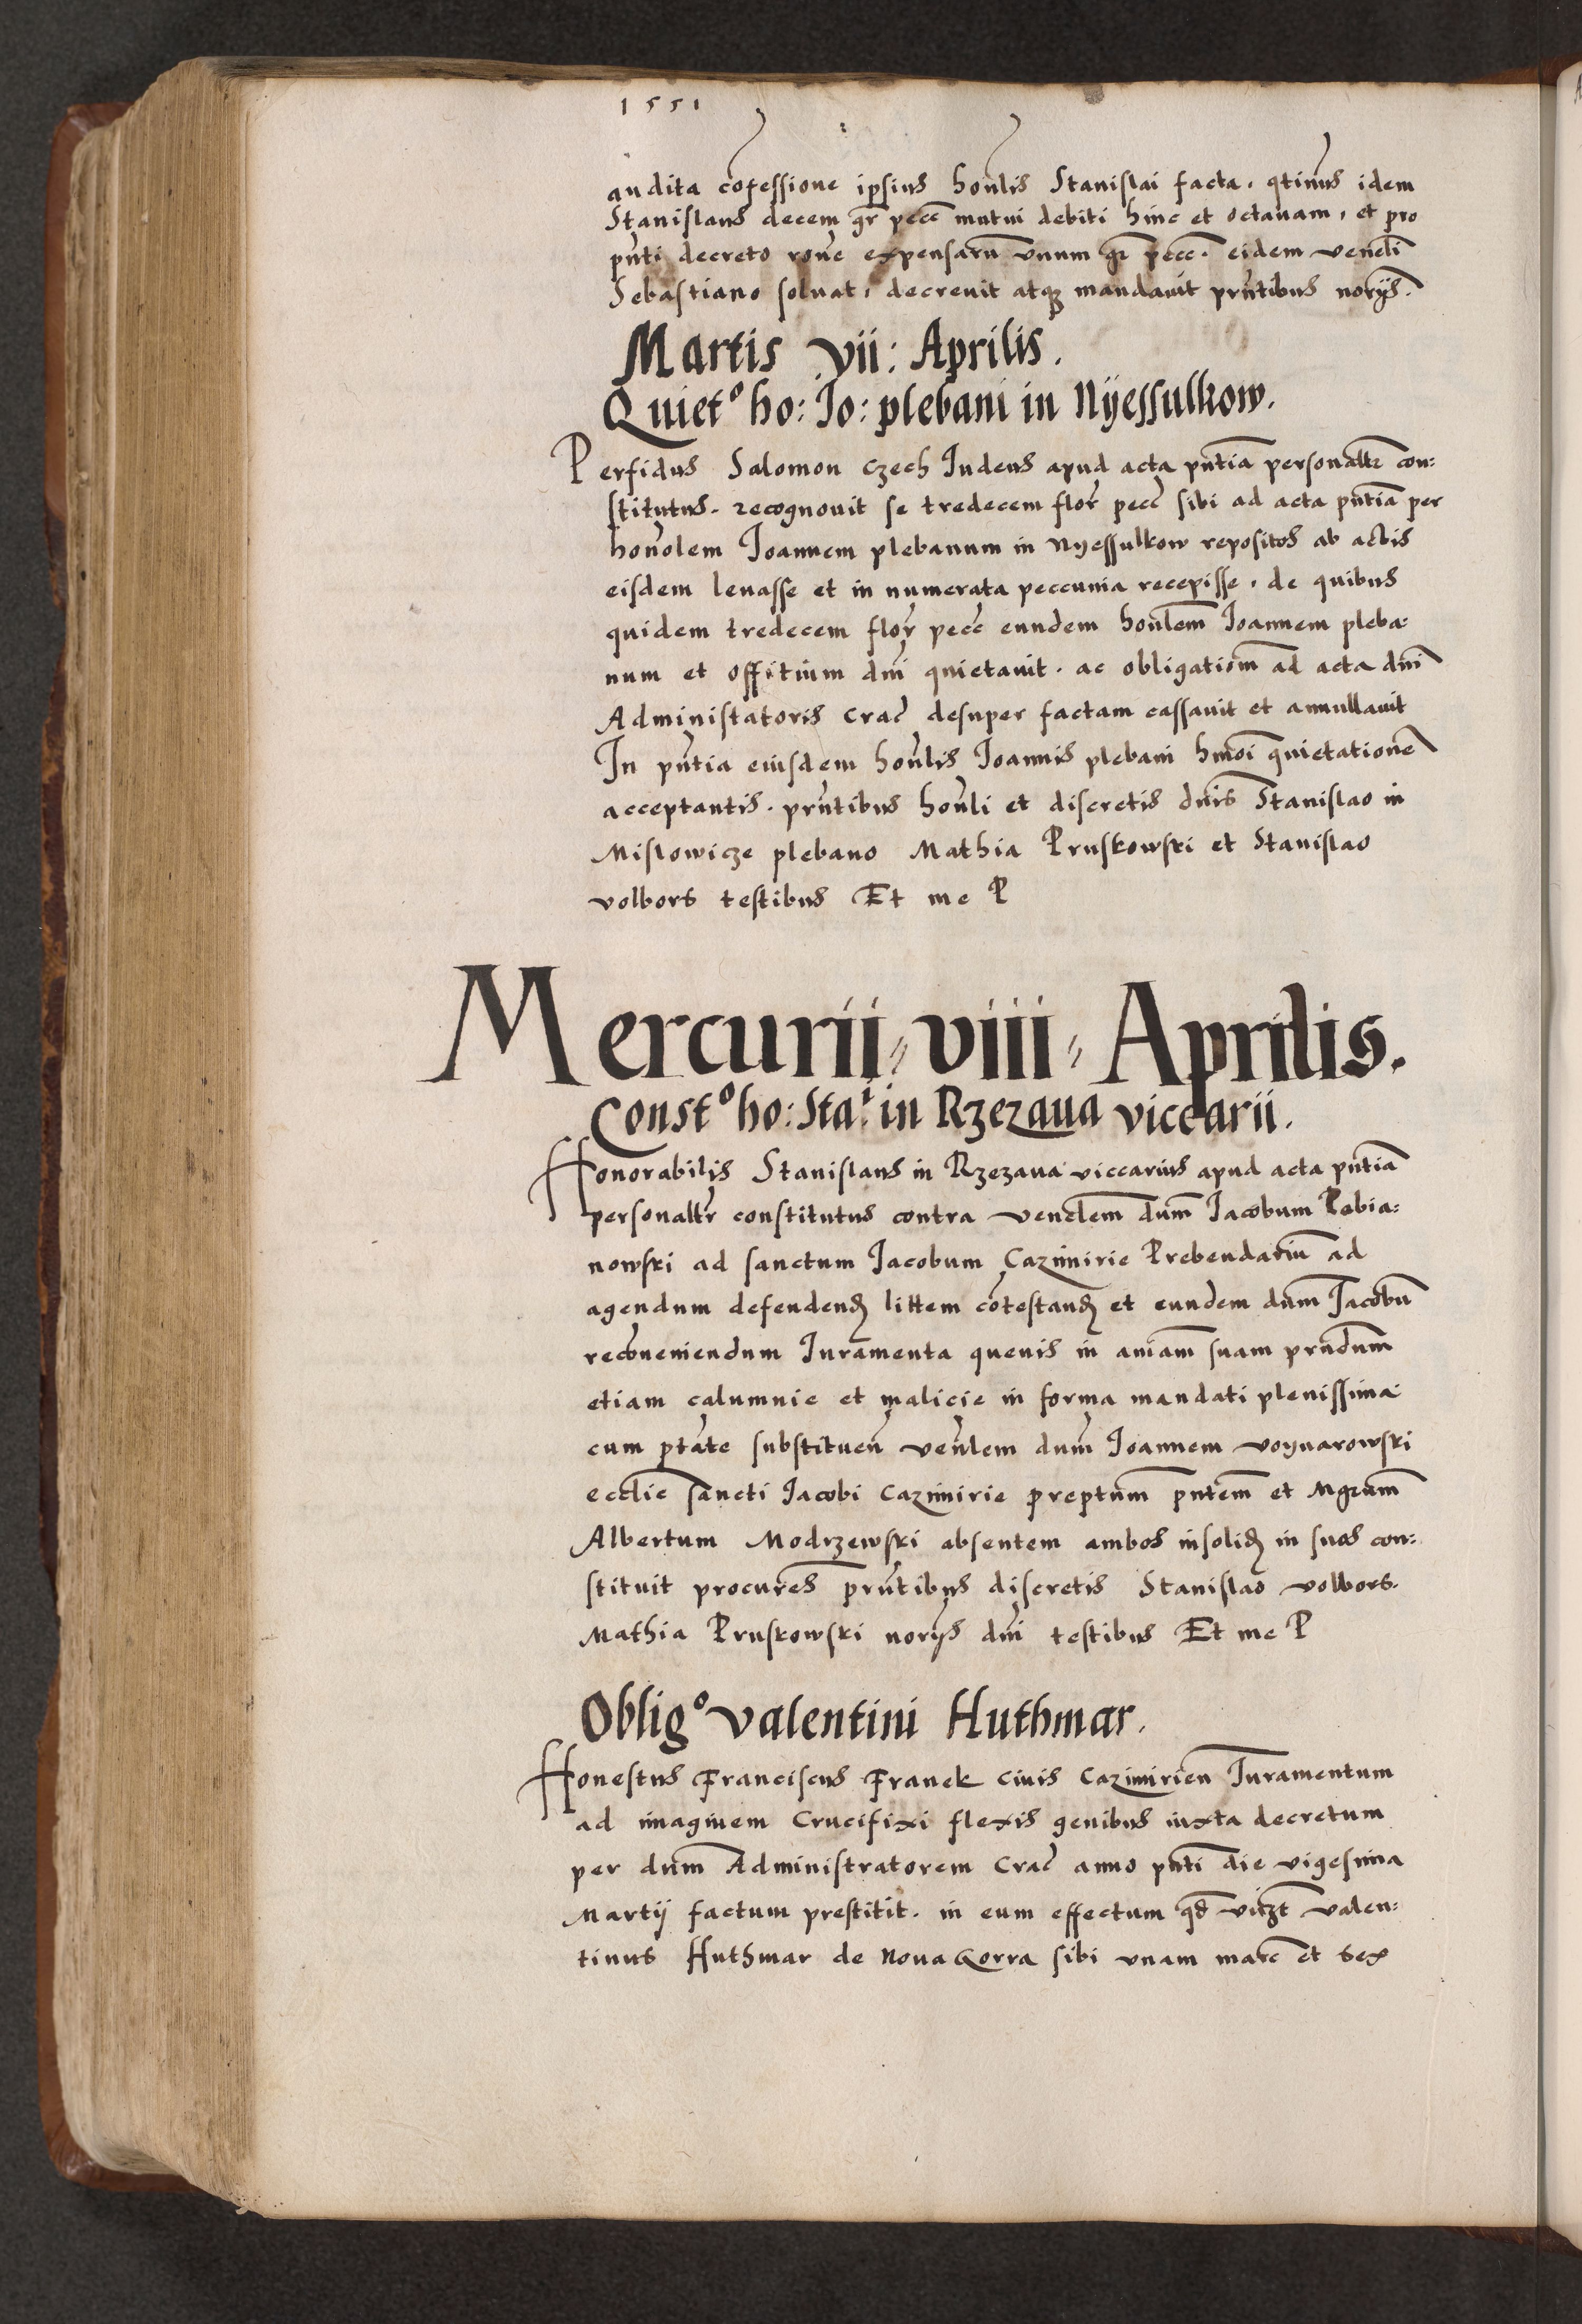 1551
audita cōfessione ipsius honlis Stanislai facta. qtinus idem
Stanislaus decem gr pecc mutui debiti hinc et octauam, et pro
pnti decreto rone expensarū vnum gr pecc. eidem veneli
Sebastiano soluat, decreuit atq3 mandauit prntibus norijs.
Martis vii: Aprilis.
Quiet° ho: Jo: plebani in Nijessulkow.
Perfidus Salomon Czech Iudeus apud acta pntia personaltr con:
stitutus. recognouit se tredecem flor pecc sibi ad acta pntia per
honolem Joannem plebanum in Nyessulkow repositos ab actis
eisdem leuasse et in numerata peccunia recepisse, de quibus
quidem tredecem flor pecc eundem honlem Joannem pleba:
num et offitium dni quietauit. ac obligationm ad acta dni
Administatoris Crac desuper factam cassauit et annullauit
In pntia eiusdem honlis Joannis plebani hmoi quietationē
acceptantis. prntibus honli et discretis dnis Stanislao in
Mislowicze plebano Mathia Pruskowski et Stanislao
volbors testibus Et me P
Mercurii, viii, Aprilis.
Const° ho: Sta: in Rzezaua viccarii.
Honorabilis Stanislaus in Rzezaua viccarius apud acta pntia
personaltr constitutus contra venelem dum Jacobum Pabia:
nowski ad sanctum Jacobum Cazimirie Prebendariū ad
agendum defendend littem cōtestand et eundem dum Jacobū
recōueniendum Iuramenta queuis in aniam suam prndum
etiam calumnie et malicie in forma mandati plenissima
cum ptate substituen venlem dum Joannem voynarowski
ecclie sancti Jacobi Cazimirie preptum pntem et Mgrum
Albertum Modrzewski absentem ambos insolid in suos con:
stituit procures prntibus discretis Stanislao volbors.
Mathia Pruskowski norijs dni testibus Et me P
Oblig° valentini Huthmar.
Honestus Franciscus Franek Ciuis Cazimirien Iuramentum
ad imaginem Crucifixi flexis genibus iuxta decretum
per dum Administratorem Crac anno pnti die vigesima
Martij factum prestitit. in eum effectum qd vitzt valen:
tinus Huthmar de Noua Gorra sibi vnam marc et sex